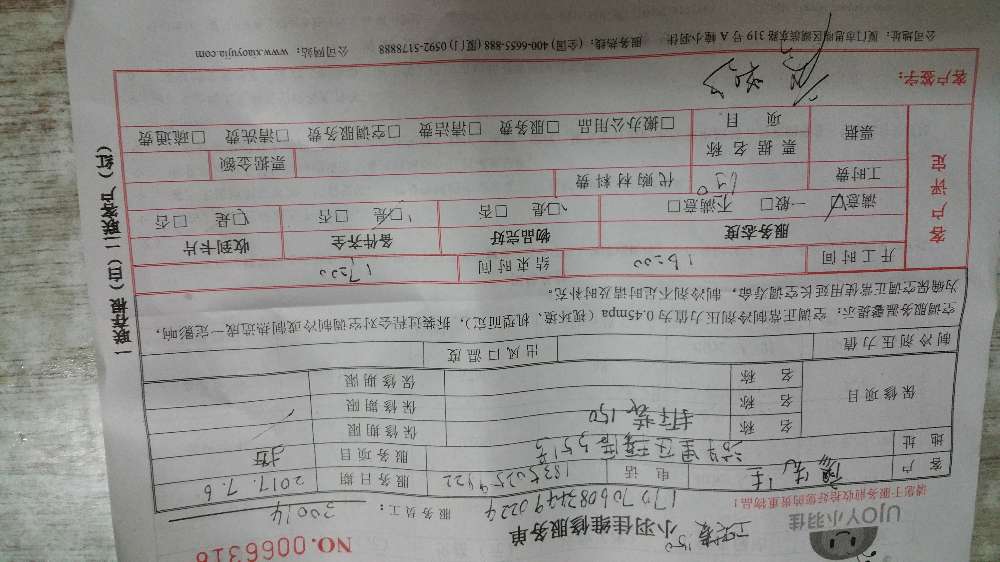 UJOY小羽佳
小羽佳维修服务单
NO.0066316
150
1707060837490224
服务员工：30014
请您于服务前收拾好您的贵重物品！
客户
电话
服务日期 2017.7.6
地址
服务项目
保修项目
名称 拆装150
保修期限
名称
保修期限
名称
保修期限
制冷剂压力值
出风口温度
空调服务温馨提示：空调正常制冷剂压力值为0.45mpa（视环境、机型而定），拆装过程会对空调制冷或制热造成一定影响，
为确保空调正常使用延长空调寿命，制冷剂不足时请及时补充。
客户评定
开工时间 16:00
结束时间 17:00
服务态度
物品完好
备件齐全
收到卡片
满意☑ 一般□ 不满意□
☑是 □否
☑是 □否
☑是 □否
工时费 150
代购材料费
票据
票据名称
票据金额
项目
□搬办公用品 □服务费 □清洁费 □空调服务费 □清洗费 □疏通费
客户签字：
公司地址：厦门市思明区湖滨南路 319 号 A 幢小羽佳 服务热线：(全国) 400-6655-888 (厦门) 0592-5178888 公司网站：www.xiaoyujia.com
一联存根（白）二联客户（红）